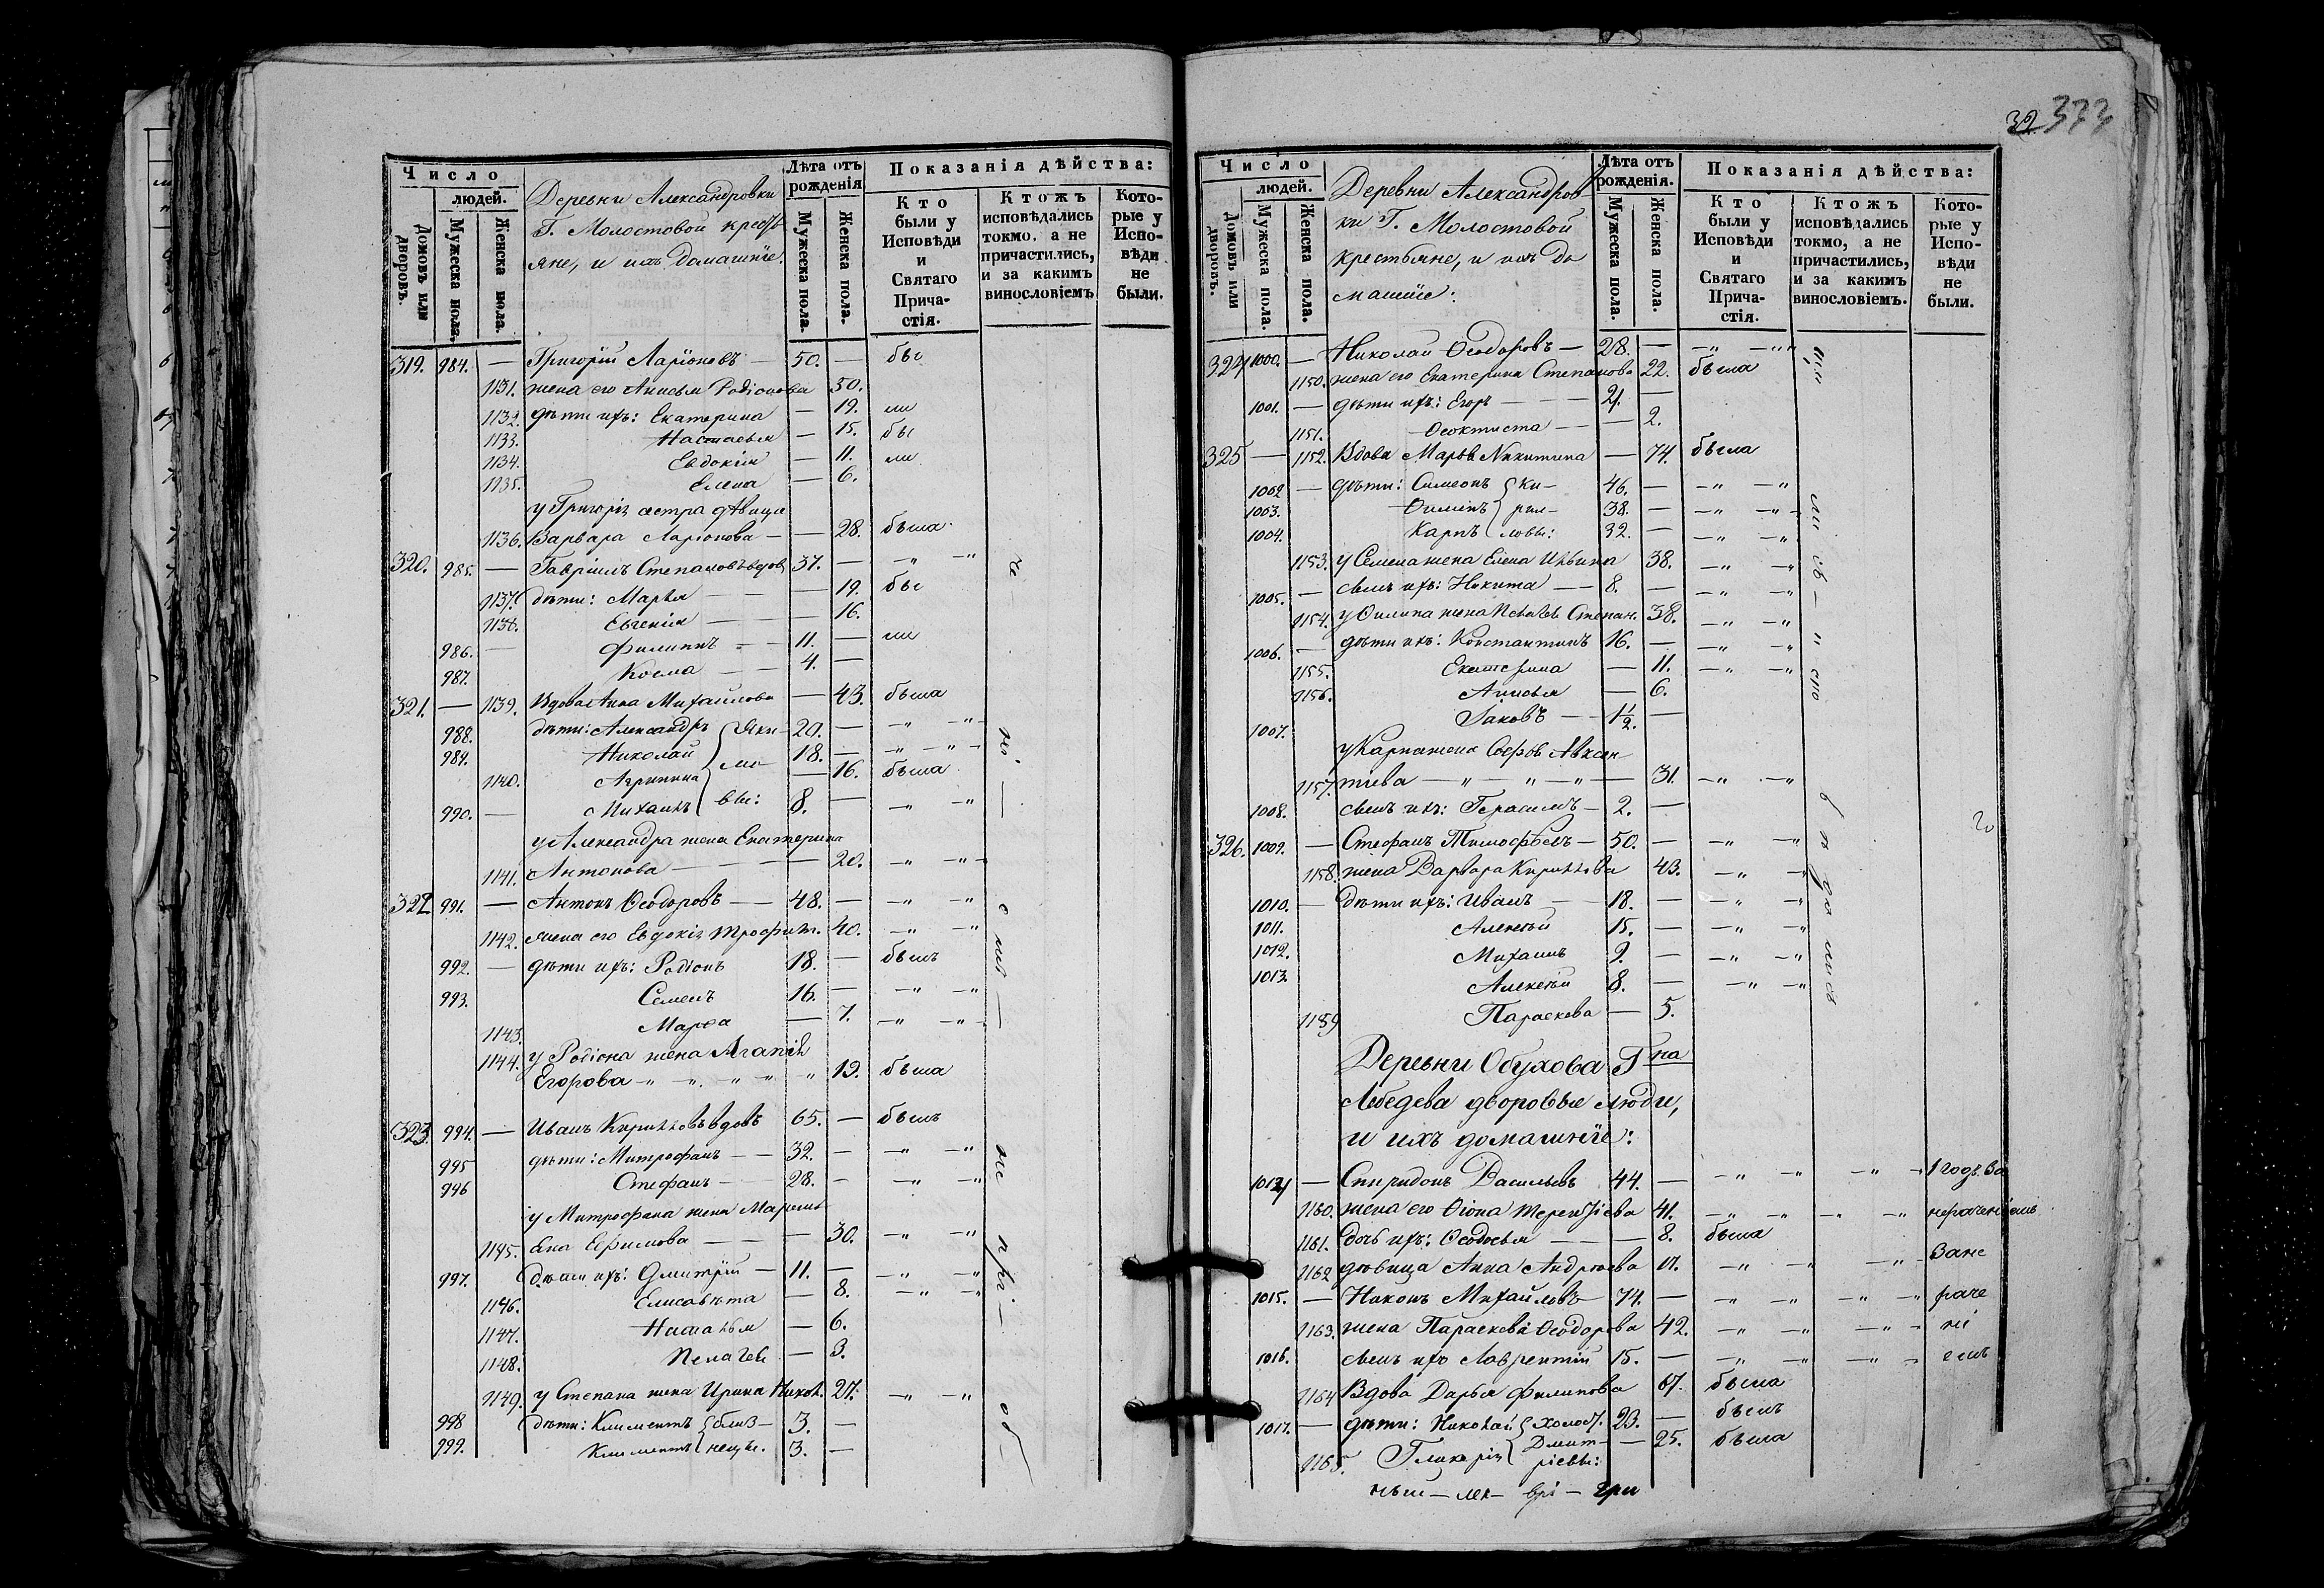 32 373
Число
людей.
Домовъ или дворовъ.
Мужеска пола.
Женска пола.
Деревни Александровки
Г. Молостовой кресть
яне, и ихъ домашнїе.
Лѣта отъ рожденія
Мужеска пола.
Женска пола.
Показанія дѣйства:
Кто были у Исповѣди и Святаго Причастія.
Ктожъ исповѣдались токмо, а не причастились, и за какимъ винословіемъ
Которые у Исповѣди не были.
319. 984. — Григорїй Ларїоновъ — 50. — бы
1131. жена его Анисья Родіонова 50.
1132. дѣти ихъ: Екатерина — 19. ли
1133. Настасья — 15. бы
1134. Евдокія — 11. ли
1135. Елена — 6.
у Григорія сестра дѣвица
1136. Варвара Ларіонова — — 28. была
320. 985. — Гавріилъ Степановъ вдов 37. — —"— "
1137. дѣти: Марья — — — 19. бы
1138. Евгенія — — — 16.
986. — Филиппъ — — 11. — ли
987. Косма — — 4. —
321. — 1139. Вдова Анна Михайлова — 43. была
988. дѣти: Александръ Яки- 20. — —"— "
989. Николай мо- 18. — —"— "
1140. Агрипина — 16. была
990. — Михаилъ вы: 8. — —"— "
у Александра жена Екатерина
1141. Антонова — — — 20. —"— "
322 991. — Антонъ Ѳеодоровъ — 48. — —"— "
1142. жена его Евдокія Трофим. 40. —"— "
992. — дѣти ихъ: Родіонъ 18. — былъ
993. Семенъ 16. — —"— "
1143. Марѳа — 7. —"— "
1144. у Родіона жена Агапія
Егорова " " " " " 19. была
323. 994. — Иванъ Кирилловъ вдовъ 65. — былъ
995 дѣти: Митрофанъ — — 32. — —"— "
996 Стефанъ — 28. — —"— "
у Митрофана жена Марим-
1145. яна Ефимова — — — 30. —"— "
997. дѣти ихъ: Дмитрїй — 11. — —"— "
1146. Елисавета — 8. —"— "
1147. Наталья — 6.
1148. Пелагея — 3.
1149. у Степана жена Ирина Никол. 27. —"— "
998 дѣти: Климентъ близ- 3. —
999. Климентъ нецы. 3. —
Число
людей.
Домовъ или дворовъ.
Мужеска пола.
Женска пола.
Деревни Александров-
ки Г. Молостовой
крестьяне, и ихъ до
машнїе:
Лѣта отъ рожденія.
Мужеска пола.
Женска пола.
Показанія дѣйства:
Кто были у Исповѣди и Святаго Причастія.
Ктожъ исповѣдались токмо, а не причастились, и за какимъ винословіемъ.
Которые у Исповѣди не были.
324 1000. — Николай Ѳеодоровъ — 28. — —"— "
1150. жена его Екатерина Степанова 22. была
1001. — дѣти ихъ: Егоръ — — — 21. —
1151. Ѳеоктиста — — — 2.
325 — 1152. Вдова Марья Никитина — 74. была
1002 — дѣти: Симеонъ Ки- 46. — —"— "
1003. Филипъ рил- 38. — —"— "
1004. Карпъ ловы: 32. — —"— "
1153. у Семена жена Елена Ильина 38. —"— "
1005. — сынъ ихъ: Никита — 8. — —"— "
1154. у Филипа жена Пелагея Степан. 38. —"— "
1006. — дѣти ихъ: Константинъ 16. — —"— "
1155. Екатерина — 11. —"— "
1156. Анисья — 6.
1007. Іаковъ — — 1½. —
у Карпа жена Софья Авксен
1157. тіева — " — " — " — 31. —"— "
1008. сынъ ихъ: Герасимъ — 2. —
326. 1009. — Стефанъ Тимофѣевъ — 50. — —"— "
1158. жена Варвара Кириллова 43. —"— "
1010. — дѣти ихъ: Иванъ — 18. — —"— "
1011. Алексѣй 15. — —"— "
1012. Михаилъ 9. — —"— "
1013. Алексѣй 8. — —"— "
1159 Параскева — 5.
Деревни Обухова Гна
Лебедева дворовые люди,
и ихъ домашнїе:
1014 — Спиридонъ Васильевъ 44. — —"— " —"— 1 годъ. За
1160. жена его Ѳіона Терентіева 41. —"— " —"— " нераченіемъ
1161. дочь ихъ: Ѳеодосья — — — 8. была
1162 дѣвица Анна Андреева 17. —"— " —"— Зане
1015. — Никонъ Михайловъ 74. — —"— " —"— " раче
1163. жена Параскева Ѳеодорова 42. —"— " —"— ні
1016. сынъ ихъ Лаврентїй 15. — —"— " —"— емъ
1164 Вдова Дарья Филипова 67. была
1017. — дѣти: Николай холост. 23. — былъ
1165. Гликерія Дмит- — 25. была
ріевы: